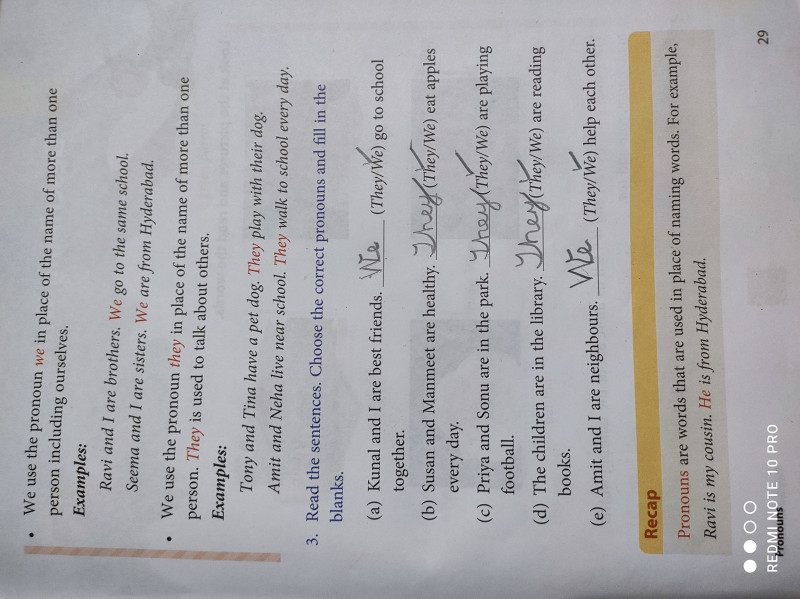 • We use the pronoun we in place of the name of more than one
person including ourselves.
Examples:
Ravi and I are brothers. We go to the same school.
Seema and I are sisters. We are from Hyderabad.
• We use the pronoun they in place of the name of more than one
person. They is used to talk about others.
Examples:
Tony and Tina have a pet dog. They play with their dog.
Amit and Neha live near school. They walk to school every day.
3. Read the sentences. Choose the correct pronouns and fill in the
blanks.
(a) Kunal and I are best friends. We (They/We) go to school
together.
(b) Susan and Manmeet are healthy. They (They/We) eat apples
every day.
(c) Priya and Sonu are in the park. They (They/We) are playing
football.
(d) The children are in the library. They (They/We) are reading
books.
(e) Amit and I are neighbours. We (They/We) help each other.
Recap
Pronouns are words that are used in place of naming words. For example,
Ravi is my cousin. He is from Hyderabad.
Pronouns
29
REDMI NOTE 10 PRO